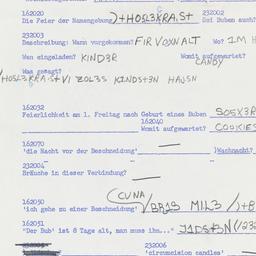 162020 232002
Die Feier der Namengebung )+HOSL3KRA.S+ Bei Buben auch?
232003
Beschreibung: Wann vorgekommen? FIR VOXNALT Wo? IM H
Wen eingeladen? KIND3R Womit aufgewartet? CANDY
Was gesagt?
HOSL3KRA.S+ VI ZOL3S KINDS+3N HAJSN
162032
Feierlichkeit am 1. Freitag nach Geburt eines Buben SO5X3R
162040
Womit aufgewartet? COOKIES
162070
'die Nacht vor der Beschneidung' — Wachnacht?
232004
Bräuche in dieser Verbindung? —
162050
'ich gehe zu einer Beschneidung' (CUNA) /BRIS MILE
162051
"Der Bub' ist 8 Tage alt, man muss ihn..."
232006
'circumcision candles'